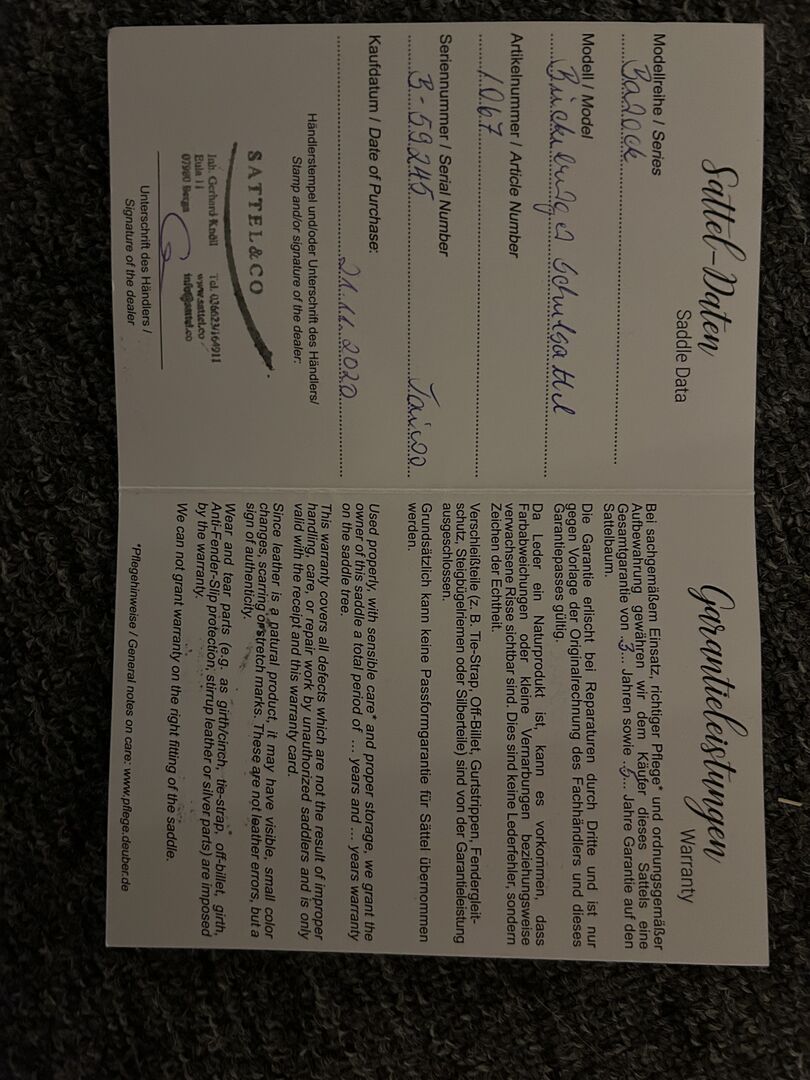 Sattel-Daten
Saddle Data
Modellreihe / Series
Barock
Modell / Model
Bückeburger Schulsattel
Artikelnummer / Article Number
1067
Seriennummer / Serial Number
B-59245
Kaufdatum / Date of Purchase:
21.11.2020
Händlerstempel und/oder Unterschrift des Händlers/
Stamp and/or signature of the dealer:
SATTEL&CO
Inh. Gerhard Knöll Tel. 036623/164911
Eula 11 www.sattel.co
07980 Berga info@sattel.co
Unterschrift des Händlers /
Signature of the dealer
Garantieleistungen
Warranty
Bei sachgemäßem Einsatz, richtiger Pflege* und ordnungsgemäßer
Aufbewahrung gewähren wir dem Käufer dieses Sattels eine
Gesamtgarantie von ..3... Jahren sowie ..5... Jahre Garantie auf den
Sattelbaum.
Die Garantie erlischt bei Reparaturen durch Dritte und ist nur
gegen Vorlage der Originalrechnung des Fachhändlers und dieses
Garantiepasses gültig.
Da Leder ein Naturprodukt ist, kann es vorkommen, dass
Farbabweichungen oder kleine Vernarbungen beziehungsweise
verwachsene Risse sichtbar sind. Dies sind keine Lederfehler, sondern
Zeichen der Echtheit.
Verschleißteile (z. B. Tie-Strap, Off-Billet, Gurtstrippen, Fendergleit-
schutz, Steigbügelriemen oder Silberteile) sind von der Garantieleistung
ausgeschlossen.
Grundsätzlich kann keine Passformgarantie für Sättel übernommen
werden.
Used properly, with sensible care* and proper storage, we grant the
owner of this saddle a total period of ... years and ... years warranty
on the saddle tree.
This warranty covers all defects which are not the result of improper
handling, care, or repair work by unauthorized saddlers and is only
valid with the receipt and this warranty card.
Since leather is a natural product, it may have visible, small color
changes, scarring or stretch marks. These are not leather errors, but a
sign of authenticity.
Wear and tear parts (e.g. as girth/cinch, tie-strap, off-billet, girth,
Anti-Fender-Slip protection, stirrup leather or silver parts) are imposed
by the warranty.
We can not grant warranty on the right fitting of the saddle.
*Pflegehinweise / General notes on care: www.pflege.deuber.de